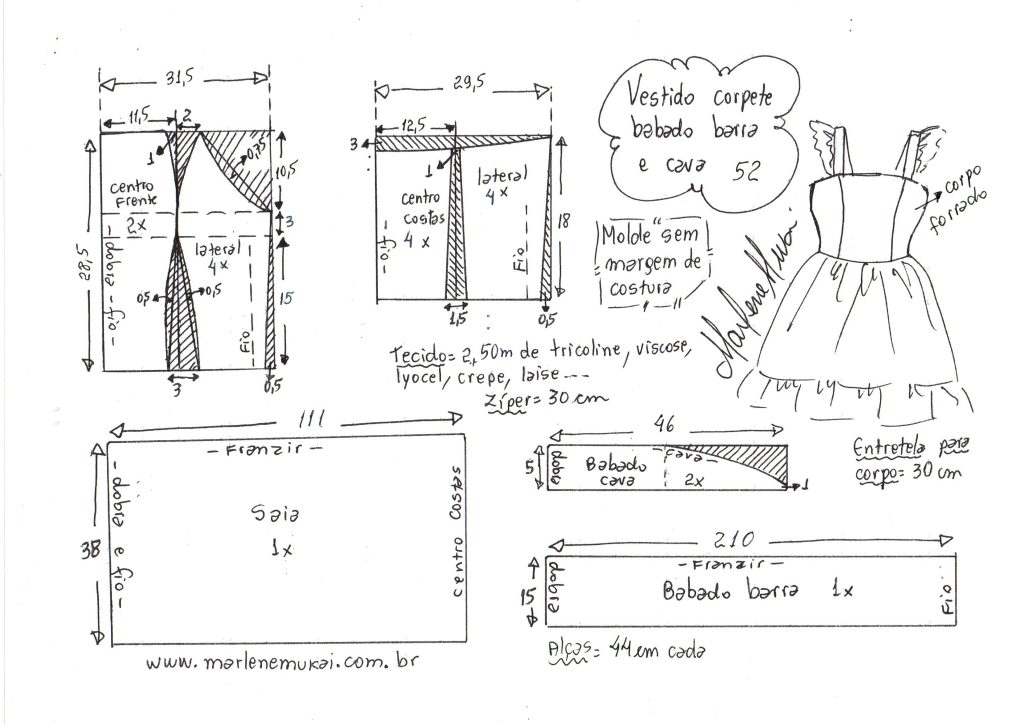 31,5
11,5
2
1
0,75
10,5
centro
Frente
2x
3
lateral
4x
28,5
- dobra - fio -
0,5
0,5
15
Fio
3
0,5
29,5
12,5
3
1
lateral
4x
centro
costas
4x
- fio -
Fio
18
1,5
0,5
Vestido corpete
babado barra
e cava 52
Molde sem
margem de
costura
corpo
forrado
Marlene Mukai
Tecido= 2,50m de tricoline, viscose,
lyocel, crepe, laise ---
Zíper= 30 cm
111
- Franzir -
- dobra e fio -
Saia
1x
centro costas
38
www.marlenemukai.com.br
46
5
dobra
Babado
cava
cava
2x
1
Entretela para
corpo= 30 cm
210
- Franzir -
15
dobra
Babado barra 1x
Fio
Alças= 44cm cada